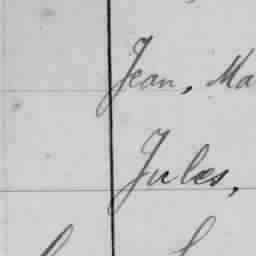 Jean, Ma
Jules,